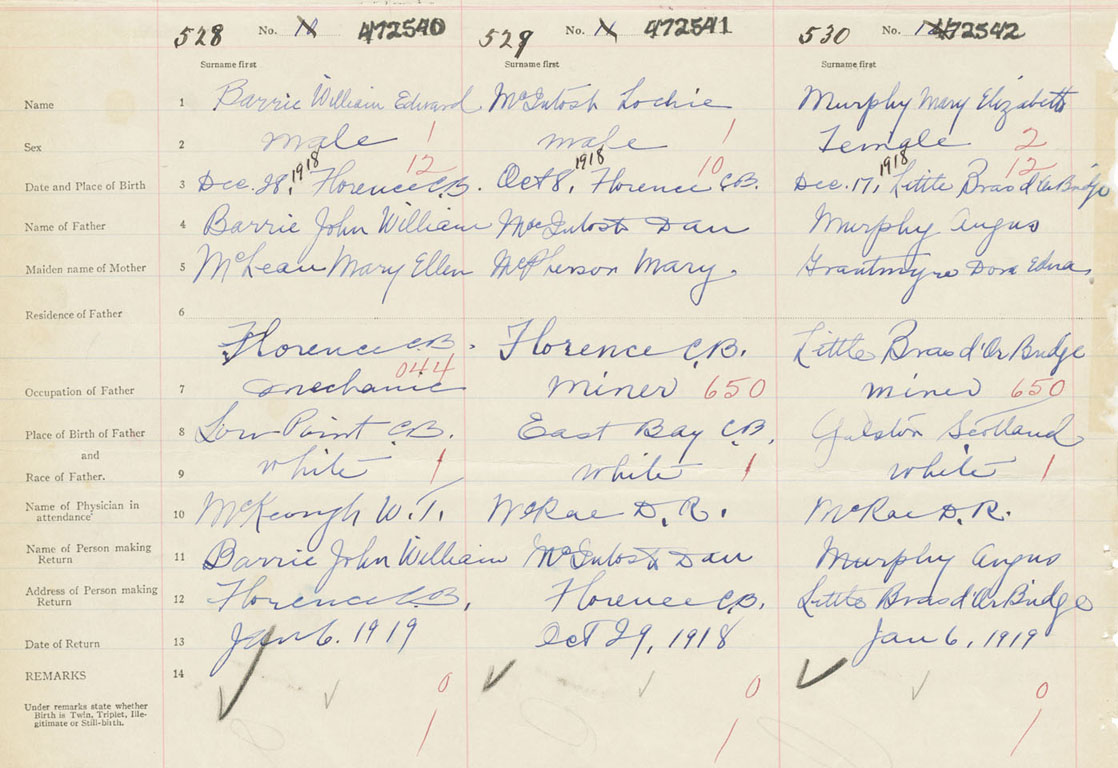 528 No. 472540 529 No. 472541 530 No. 472542
Surname first Surname first Surname first
Name 1 Barrie William Edward McIntosh Lochie Murphy Mary Elizabeth
Sex 2 male 1 male 1 Female 2
1918 12 1918 10 1918 12
Date and Place of Birth 3 Dec. 28, Florence C.B. Oct 8, Florence C.B. Dec. 17, Little Bras d'Or Bridge
Name of Father 4 Barrie John William MacIntosh Dan Murphy Angus
Maiden name of Mother 5 McLean Mary Ellen McPherson Mary. Grantmyre Dora Edna
Residence of Father 6
Florence C.B. Florence C.B. Little Bras d'Or Bridge
044
Occupation of Father 7 mechanic miner 650 miner 650
Place of Birth of Father 8 Low Point C.B. East Bay C.B. Galston Scotland
and
Race of Father. 9 white 1 white 1 white 1
Name of Physician in
attendance 10 McKeough W.T. McRae D.R. McRae D.R.
Name of Person making
Return 11 Barrie John William McIntosh Dan Murphy Angus
Address of Person making
Return 12 Florence C.B. Florence C.B. Little Bras d'Or Bridge
Date of Return 13 Jan 6. 1919 Oct 29, 1918 Jan 6, 1919
REMARKS 14
0 0 0
Under remarks state whether
Birth is Twin, Triplet, Ille-
gitimate or Still-birth.
1 1 1